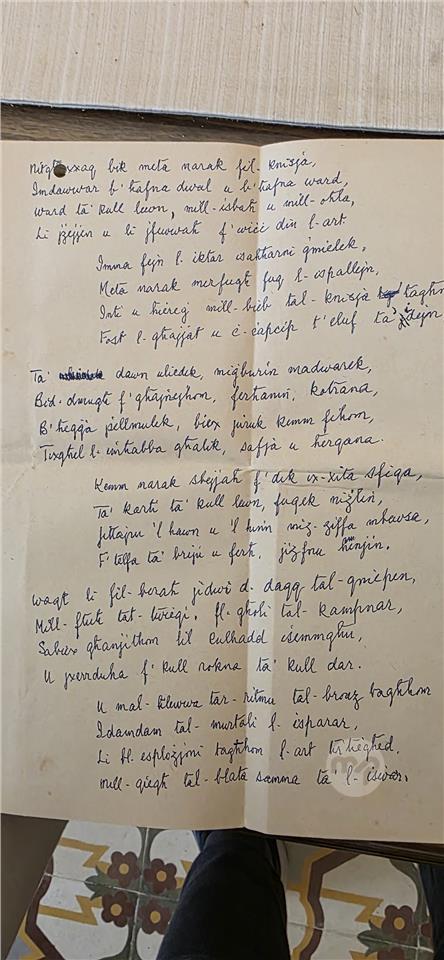 Nitgħaxxaq bik meta narak fil-knisja,
Imdawwar b'ħafna dwal u b'ħafna ward,
ward ta' kull lewn, mill-isbaħ u mill-oħla,
Li jżejjen u li jfuwwaħ f'wiċċ din l-art.
Imma fejn l-iktar issaħħarni ġmielek,
Meta narak merfugħ fuq l-ispallejn,
Inti u ħiereġ mill-bieb tal-knisja tagħna
Fost l-għajjat u ċ-ċapċip t'eluf ta' jdejn
Ta' dawn uliedek, miġburin madwarek,
Bid-dmugħ f'għajnejhom, ferħanin, kotrana,
B'ħeġġa jellmulek, biex juruk kemm fihom,
Tixgħel l-imħabba għalik, safja u ħerqana.
Kemm narak sbejjaħ f'dik ix-xita sfiqa,
Ta' karti ta' kull lewn, fuqek niżlin,
Jittajru 'l hawn u 'l hinn miż-żiffa mbewsa,
F'telfa ta' briju u ferħ, jiżfnu henjin.
Waqt li fil-beraħ jidwi d-daqq tal-qniepen,
Mill-ftuħ tat-twieqi, fl-għoli tal-kampnar,
Sabiex għanjithom lil kulħadd isemmgħu,
U jxerrduha f'kull rokna ta' kull dar.
U mal-ħlewwa tar-ritmu tal-bronż tagħhom
Idamdam tal-murtali l-isparar,
Li bl-esplożjoni tagħhom l-art titriegħed,
mill-qiegħ tal-blata samma ta' l-iswar.